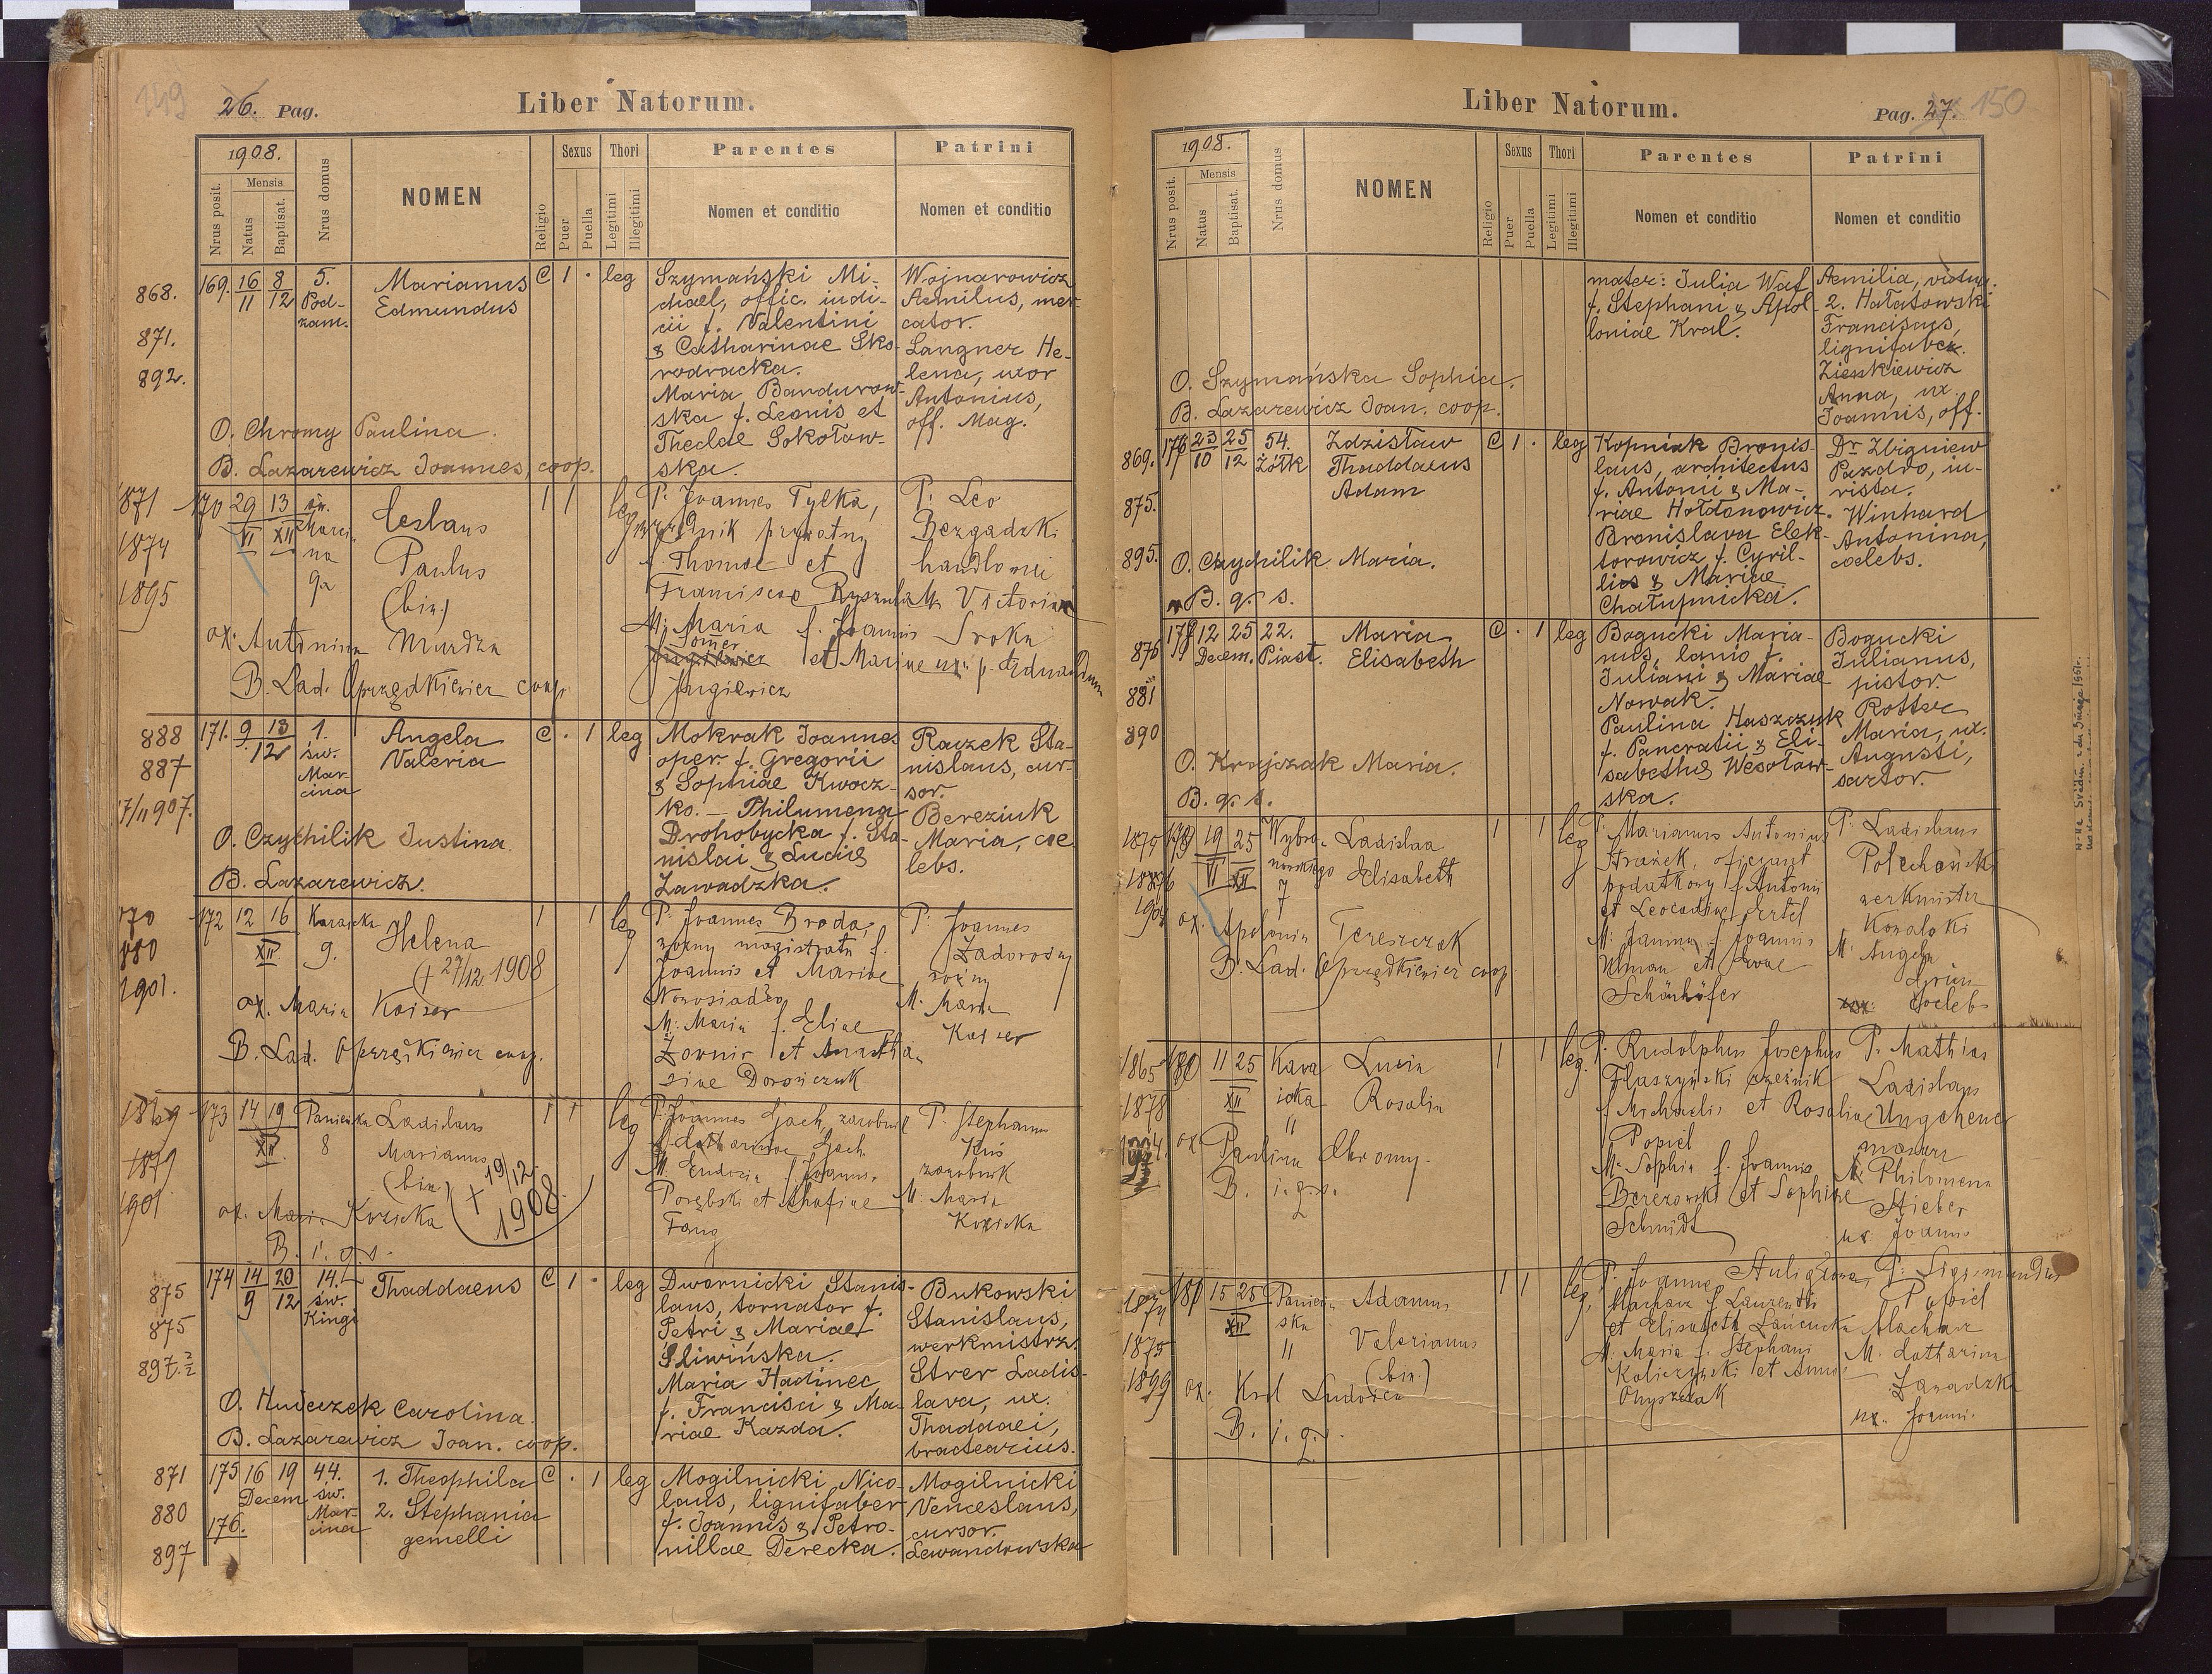 149
26. Pag.
Liber Natorum.
1908.
Nrus posit.
Mensis
Natus
Baptisat.
Nrus domus
NOMEN
Religio
Sexus
Puer
Puella
Thori
Legitimi
Illegitimi
Parentes
Nomen et conditio
Patrini
Nomen et conditio
868.
871.
892.
169.
16/11
8/12
5.
Pod-
zam.
Marianus
Edmundus
C 1 · leg
Szymański Mi-
chael, offic. iudi-
cii f. Valentini
& Catharinae Sko-
rodracka.
Maria Bandurow-
ska f. Leonis et
Theclae Sokołow-
ska.
Wojnarowicz
Aemilus, mer-
cator.
Langner He-
lena, uxor
Antonius,
off. Mag.
O. Chromy Paulina.
B. Lazarewicz Joannes, coop.
1871
1874
1895
170
29/VI
13/XII
św.
Marci-
na
9a
Ceslaus
Paulus
(bin.)
1 1 leg
P: Joannes Tylka,
urzędnik prywatny
f. Thomae et
Franciscae
M: Maria f. Joannis
Somer
et Mariae
Jugiewicz
P: Leo
Bezgadzki
handlowiec
M: Victoria
Sroka
ux: p. Eduardum
ox: Antonina Murdza
B. Lad. Oprzędkiewicz coop.
888
887
7/11 907.
171.
9
13
12
1.
św.
Mar-
cina
Angela
Valeria
C · 1 leg
Mokrak Joannes
oper. f. Gregorii
& Sophiae Kwocz-
ko. — Philumena
Drohobycka f. Sta-
nislai & Luciae
Zawadzka.
Raczek Sta-
nislaus, cur-
sor.
Bereziuk
Maria, coe
lebs.
O. Czychilik Justina.
B. Lazarewicz.
870
880
1901.
172
12
16
XII
9.
Helena
(+ 27/12 1908
1 1 leg
P: Joannes Broda,
woźny magistratu f.
Joannis et Mariae
Nowosiadło
M: Maria f. Eliae
Żownir et Anastha-
siae Dorosiczuk
P: Joannes
Zadorożny
woźny
M: Maria
Kaiser
ox. Maria Kaiser
B. Lad. Oprzędkiewicz coop.
1869
1879
1901
173
14
19
XII
8
Ladislaus
Marianus
(bin.)
+ 19/12
1908.
1 1 leg
P: Joannes Gach, zarobnik
f. Catharinae Gach
M. Eudoxia f. Joannis
Porębski et Sophiae
Fang
P. Stephanus
Kuś
zarobnik
M: Maria
Kozicka
ox. Maria Kozicka
B. i. q. s.
875
875
897.2/2
174
14/9
20/12
14.
św.
Kingi
Thaddaeus
C 1 · leg
Dwornicki Stanis-
laus, tornator f.
Petri & Mariae
Śliwińska.
Maria Hadinec
f. Francisci & Ma-
riae Kazda.
Bukowski
Stanislaus,
werkmistrz.
Strer Ladis-
lava, ux.
Thaddaei,
bractearius.
O. Hudeczek Carolina.
B. Lazarewicz Joan. coop.
871
880
897
175
176.
16
19
Decem.
44.
św.
Mar-
cina
1. Theophila
2. Stephania
gemelli
C · 1 leg
Mogilnicki Nico-
laus, lignifaber
f. Joannis & Petro-
nillae Derecka.
Mogilnicki
Venceslaus,
cursor.
Lewandowska
Liber Natorum.
Pag. 27.
150
1908.
Nrus posit.
Mensis
Natus
Baptisat.
Nrus domus
NOMEN
Religio
Sexus
Puer
Puella
Thori
Legitimi
Illegitimi
Parentes
Nomen et conditio
Patrini
Nomen et conditio
mater: Julia Waf
f. Stephani & Apol-
loniae Kral.
Aemilia, vidua.
2. Hałatowski
Franciscus,
lignifaber.
Zienkiewicz
Anna, ux.
Joannis, off.
O. Szymańska Sophia.
B. Lazarewicz Joan. coop.
869.
875.
895.
177
23/10
25/12
54.
Żółk
Zdzisław
Thaddaeus
Adam
C 1 · leg
Kopniak Bronis-
laus, architectus
f. Antonii & Ma-
riae Hołdonowicz.
Bronislava Elek-
torowicz f. Cyril-
lies & Mariae
Chałupnicka.
Dr Zbigniew
Pazdro, iu-
rista.
Winhard
Antonina,
coelebs.
O. Czychilik Maria.
B. q. s.
876
881
890
178
12
25
Decem.
22.
Piast.
Maria
Elisabeth
C · 1 leg
Bogucki Maria-
nus, lanio f.
Juliani & Mariae
Nowak.
Paulina Haszczuk
f. Pancratii & Eli-
sabethae Wesołow-
ska.
Bogucki
Julianus,
pistor.
Rotter
Maria, ux.
Augusti,
sartor.
O. Krajczak Maria.
B. q. s.
179
19
25
VI
XII
Wybra-
nowskiego
7
Ladislaa
Elisabeth
1 1 leg
P: Marianus Antonius
Strażek, oficyant
podatkowy f. Antonii
et Leocadiae Ertel
M: Janina f. Joannis
Uman et
Schönhöfer
P. Ladislaus
werkmistrz
Kowalski
M: Angela
Grün
coelebs
ox. Apolonia Tereszczak
B. Lad. Oprzędkiewicz coop.
1865
1878
180
11
25
XII
"
Lucia
Rosalia
1 1 leg.
P. Rudolphus Josephus
Flaszyński rzeźnik
f. Michaelis et Rosaliae
Popiel
M. Sophia f. Joannis
Berezowski et Sophiae
Schmidt
P. Mathias
Ladislaus
Ungeheuer
M. Philomena
Stieber
ux Joannis
ox Paulina Chromy.
B. i. q. s.
1874
1875
1899
181
15
25
XII
Panień-
ska
"
Adamus
Valerianus
(bin.)
1 1 leg.
P. Joannes
f. Laurentii
et Elisabeth
M: Maria f. Stephani
et Annae
P. Sigismundus
Popiel
M. Catharina
Zawadzka
ux. Joannis
ox. Krol Ludovica
B. i. q. s.